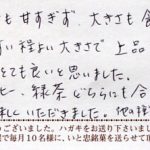 も甘すぎず、大きさも食
い程よい大きさで上品
とても良いと思いました。
ヒー、緑茶どちらにも合
味しくいただきました。他の種
うございました。ハガキをお送り下さいまし
で毎月10名様に、いと忠銘菓を送らせて頂